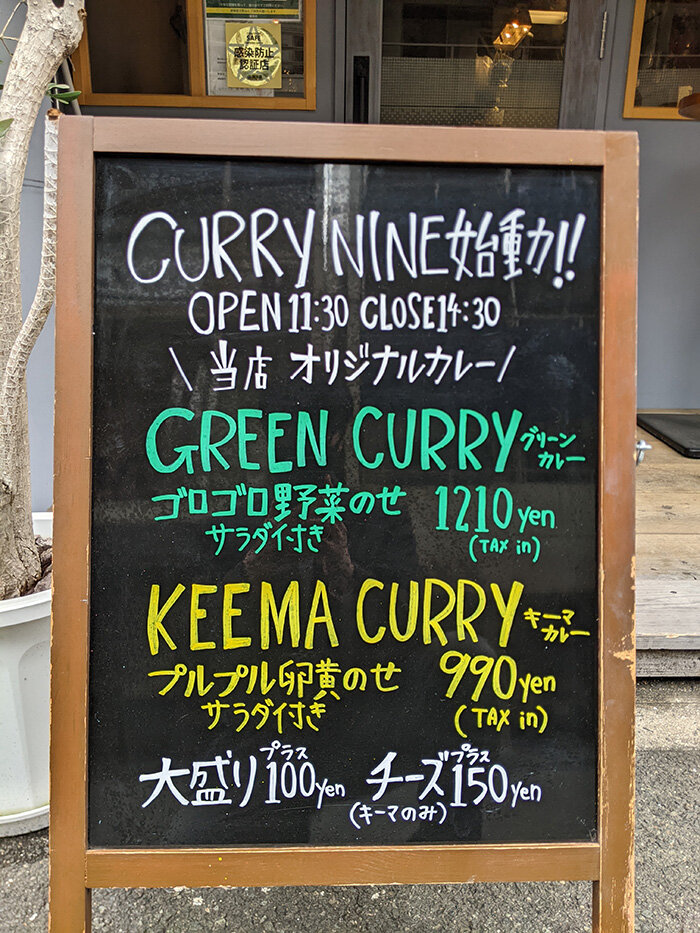 SAFE
感染防止
認証店
CURRY NINE始動!!
OPEN 11:30 CLOSE 14:30
\ 当店 オリジナルカレー /
GREEN CURRY グリーンカレー
ゴロゴロ野菜のせ 1210 yen
サラダ付き (TAX in)
KEEMA CURRY キーマカレー
プルプル卵黄のせ 990 yen
サラダ付き (TAX in)
大盛り プラス100yen チーズ プラス150yen
(キーマのみ)